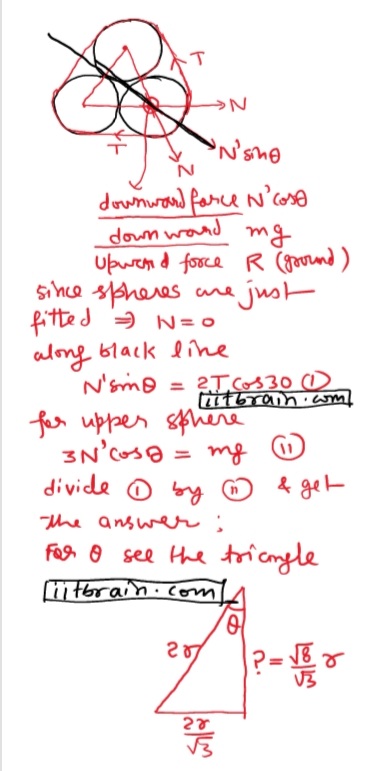 T
N
T
N
N'sinθ
downward force N'cosθ
downward mg
upward force R (ground)
since spheres are just
fitted ⇒ N=0
along black line
N'sinθ = 2Tcos30 ①
iitbrain.com
for upper sphere
3N'cosθ = mg ⑪
divide ① by ⑪ & get
the answer;
For θ see the triangle
iitbrain.com
θ
2r
?= √8/√3 r
2r/√3